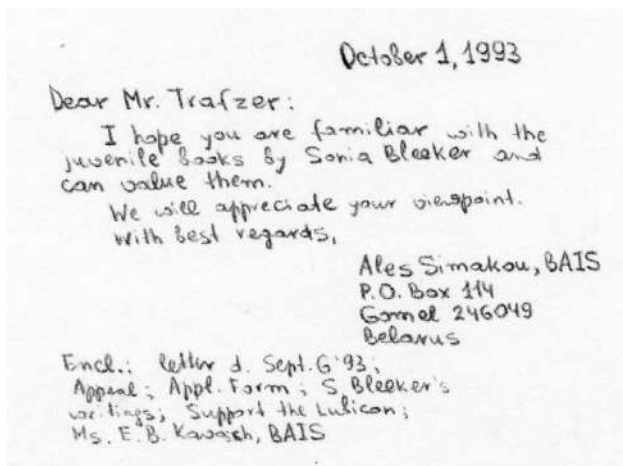 October 1, 1993
Dear Mr. Trafzer:
I hope you are familiar with the
juvenile books by Sonia Bleeker and
can value them.
We will appreciate your viewpoint.
With best regards,
Ales Simakou, BAIS
P.O. Box 114
Gomel 246049
Belarus
Encl.: letter d. Sept. 6 '93;
Appeal; Appl. Form; S. Bleeker's
writings; Support the Lubicon;
Ms. E.B. Kavasch, BAIS